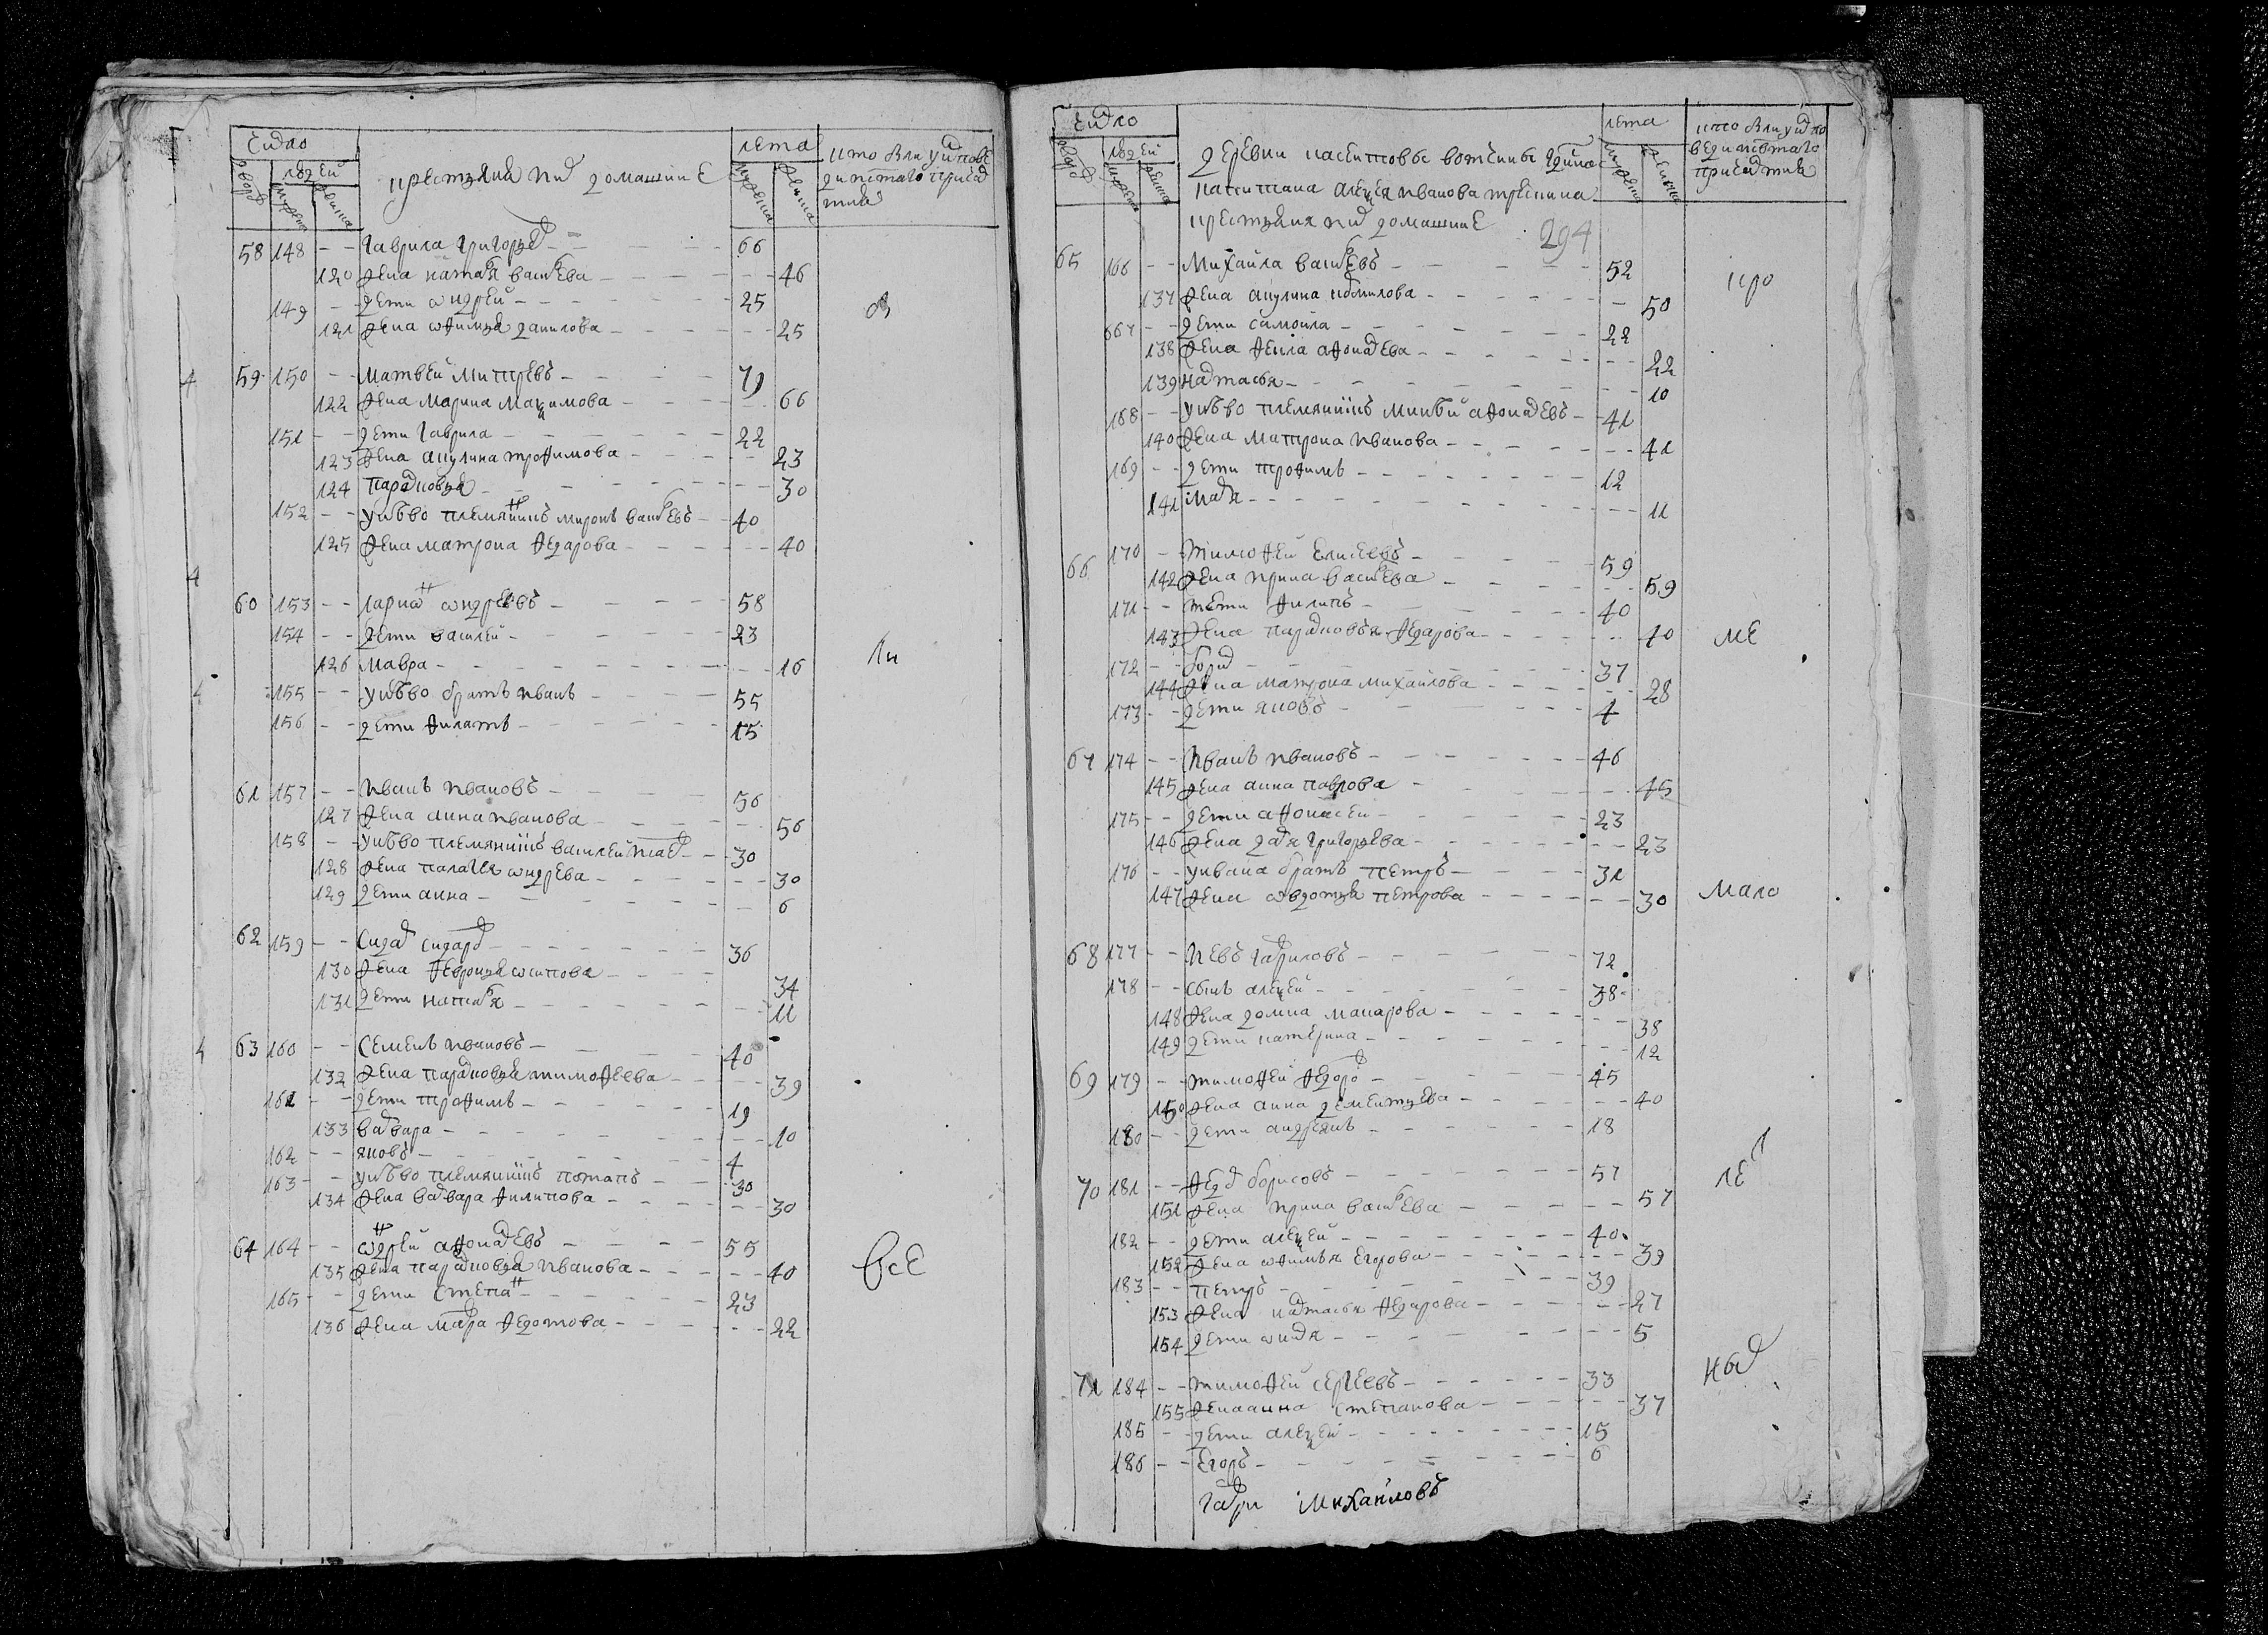 Число
дворовъ
людей
мужеска
женска
крестьяня и их домашние
лета
мужеска
женска
кто был у исповеди и святаго причастия
58 148 – – Гаврила Григорьев 66
120 жена Наталя Васильева 46
149 – – дети Андрей 25
121 жена Афимья Данилова 25
В
4 59 150 – – Матвей Митревъ 79
122 жена Марина Максимова 66
151 – – дети Гаврила 22
123 жена Акулина Трофимова 23
124 Парасковья 30
152 – – у него племянникъ Миронъ Васильевъ 40
125 жена Матрона Федарова 40
4
60 153 – – Ларион Андреевъ 58
154 – – дети Василей 23
126 Мавра 16
Ли
4 155 – – у него братъ Иванъ 55
156 – – дети Филатъ 15
61 157 – – Иванъ Ивановъ 56
127 жена Анна Иванова 56
158 – – у него племянникъ Василей 30
128 жена Палагея Андрева 30
129 дети Анна 6
62 159 – – Сидар Сидаров 36
130 жена Февронья Осипова 34
131 дети Наталя 11
4 63 160 – – Семенъ Ивановъ 40
132 жена Парасковья Тимофеева 39
161 – – дети Трофимъ 19
133 Варвара 10
162 – – Яковъ 4
163 – – у него племянникъ Потапъ 30
134 жена Варвара Филипова 30
64 164 – – Андрей Афонасьевъ 55
135 жена Парасковья Иванова 40
все
165 – – дети Степан 23
136 жена Марфа Федотова 22
Число
дворовъ
людей
мужеска
женска
деревни Касиковы вотчины
капитана Алексея Иванова
крестьяня и их домашние
294
лета
мужеска
женска
кто был у исповеди и святаго причастия
65 166 – – Михаила Васильевъ 52
кро
137 жена Акулина 50
167 – – дети Самойла 22
138 жена Фекла Афонасьева 22
139 Настасья 10
168 – – у него племянникъ Михей Афонасьевъ 41
140 жена Матрона Иванова 41
169 – – дети Трофимъ 12
141 Марья 11
66 170 – – Тимофей Елисеевъ 59
142 жена Ирина Васильева 59
171 – – дети Филипъ 40
143 жена Парасковья Федарова 40
ме
172 – – Борис 37
144 жена Матрона Михайлова 28
173 – – дети Яковъ 4
67 174 – – Иванъ Ивановъ 46
145 жена Анна Лаврова 45
175 – – дети Афонасей 23
146 жена Дарья Григорьева 23
176 – – у Ивана братъ Петръ 31
147 жена Авдотья Петрова 30
мало
68 177 – – Иевъ Гавриловъ 72
178 – – сынъ Алексей 38
148 жена Домна Макарова 38
149 дети Катерина 12
69 179 – – Тимофей Федоров 45
150 жена Анна Дементьева 40
180 – – дети Андреянъ 18
70 181 – – Федор Борисовъ 57
ле
151 жена Ирина Васильева 57
182 – – дети Алексей 40
152 жена Афимья Егорова 39
183 – – Петръ 39
153 жена Настасья Федарова 27
154 дети 5
71 184 – – Тимофей Сергеевъ 33
ных
155 жена Анна Степанова 37
185 – – дети Алексей 15
186 – – Егоръ 6
Гаври Михайловъ